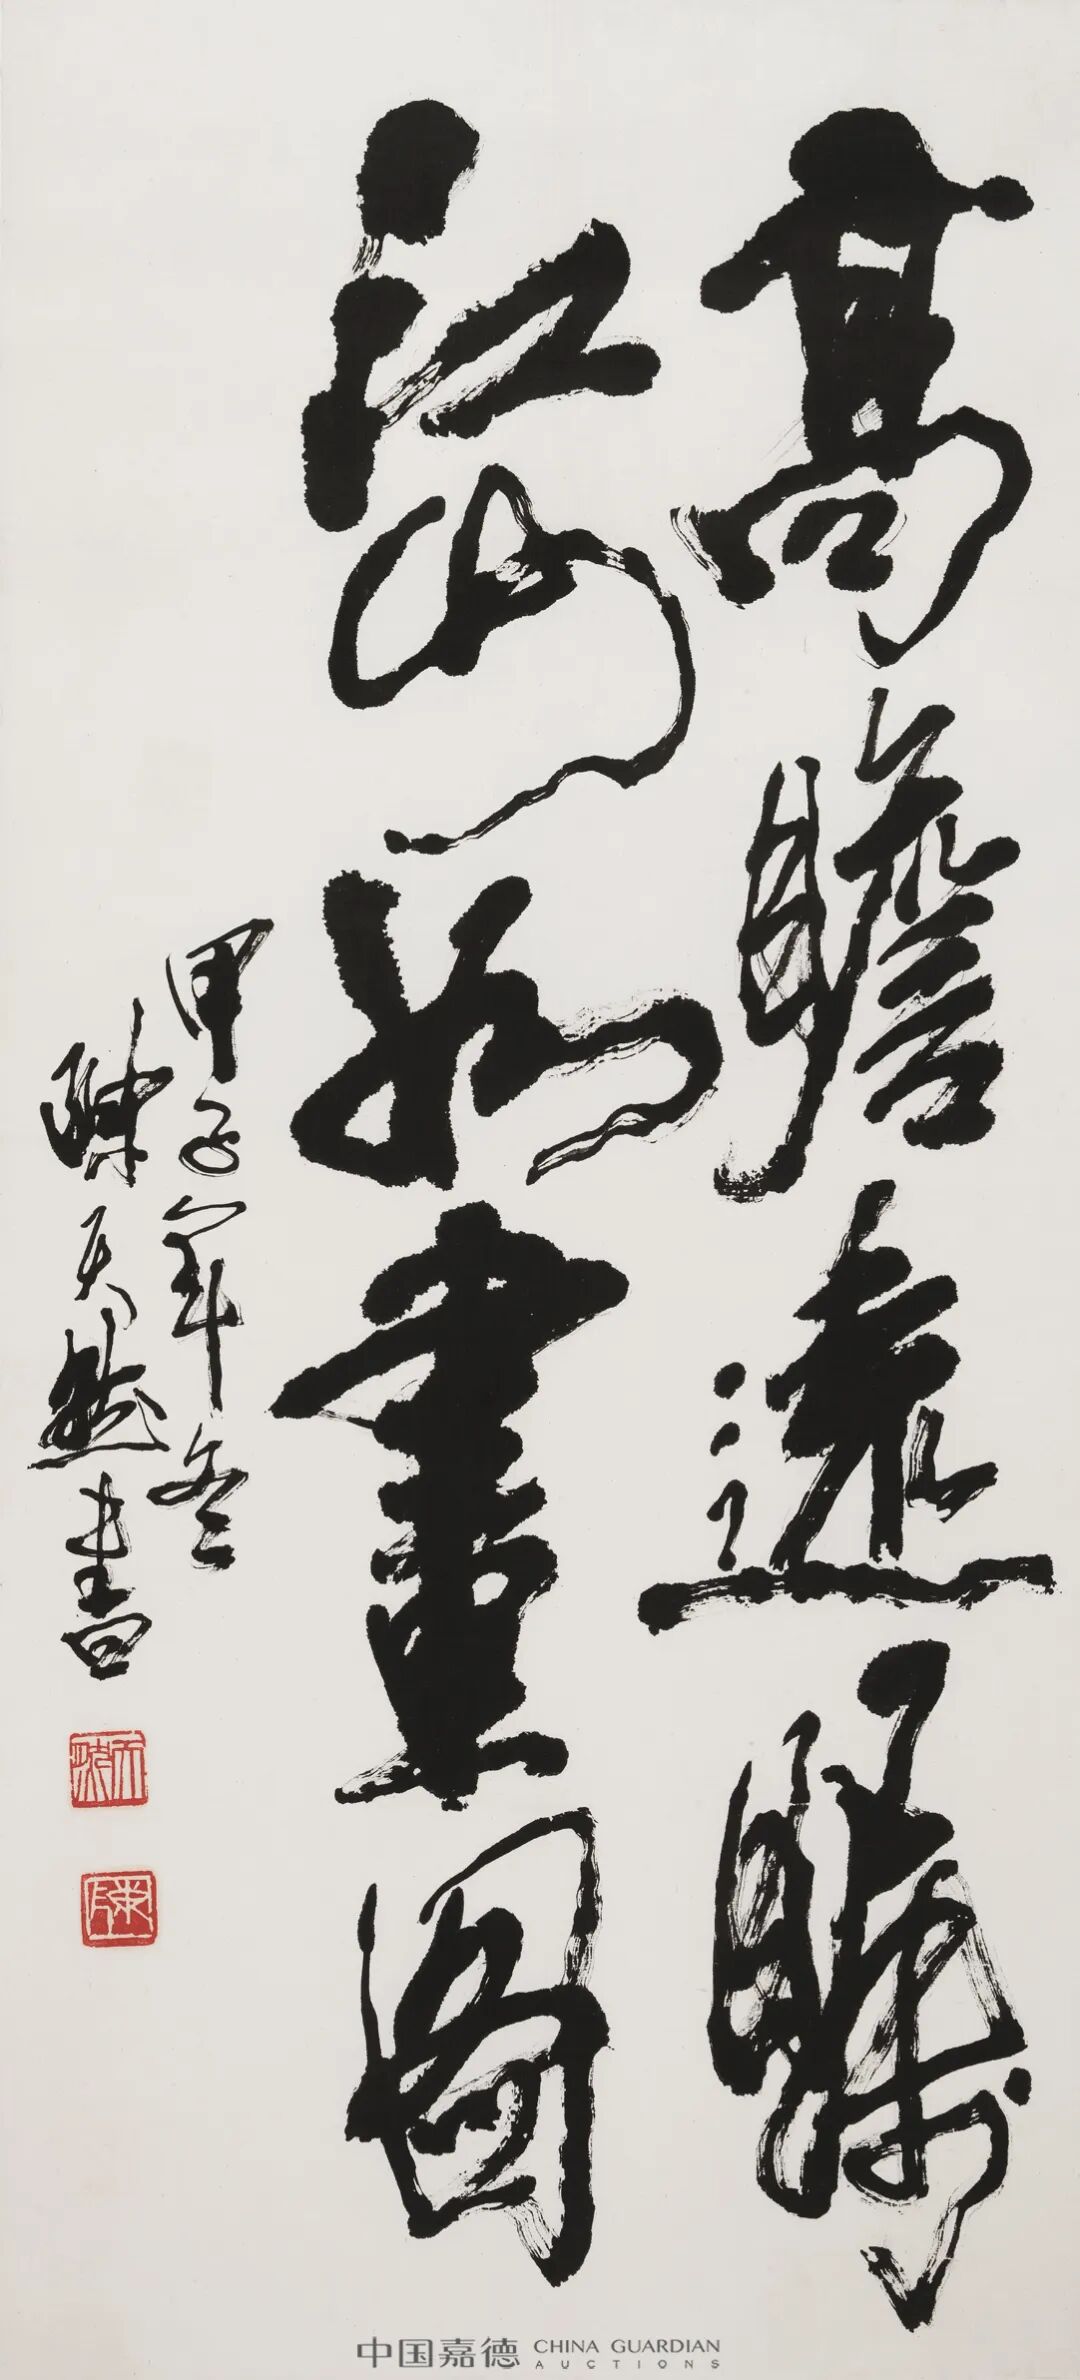 高瞻遠矚
江山如畫圖
甲子年冬
陳天然書
天然
陳
中国嘉德 CHINA GUARDIAN AUCTIONS